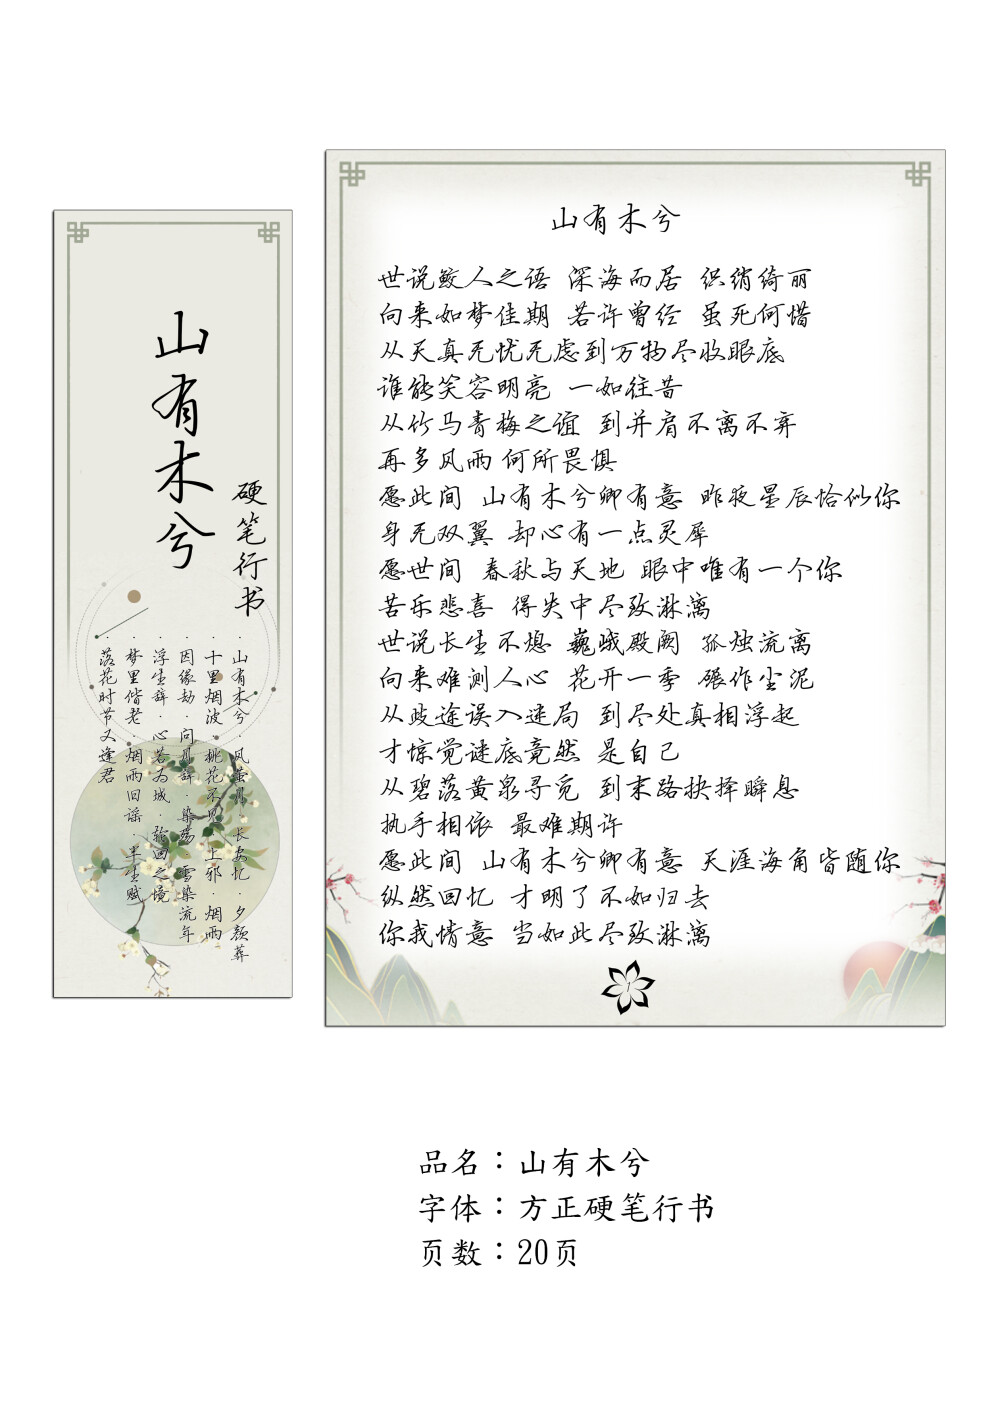 山有木兮
硬笔行书
·山有木兮·风萤月·长安忆·夕颜葬
·十里烟波·桃花不见·上邪·烟雨
·因缘劫·问月辞·染殇·雪染流年
·浮生辞·心若为城·轮回之境
·梦里偕老·烟雨旧谣·半生赋
·落花时节又逢君
山有木兮
世说鲛人之语 深海而居 织绡绮丽
向来如梦佳期 若许曾经 虽死何惜
从天真无忧无虑到万物尽收眼底
谁能笑容明亮 一如往昔
从竹马青梅之谊 到并肩不离不弃
再多风雨 何所畏惧
愿此间 山有木兮卿有意 昨夜星辰恰似你
身无双翼 却心有一点灵犀
愿世间 春秋与天地 眼中唯有一个你
苦乐悲喜 得失中尽致淋漓
世说长生不熄 巍峨殿阙 孤烛流离
向来难测人心 花开一季 碾作尘泥
从歧途误入迷局 到尽处真相浮起
才惊觉谜底竟然 是自己
从碧落黄泉寻觅 到末路抉择瞬息
执手相依 最难期许
愿此间 山有木兮卿有意 天涯海角皆随你
纵然回忆 才明了不如归去
你我情意 当如此尽致淋漓
1
品名：山有木兮
字体：方正硬笔行书
页数：20页